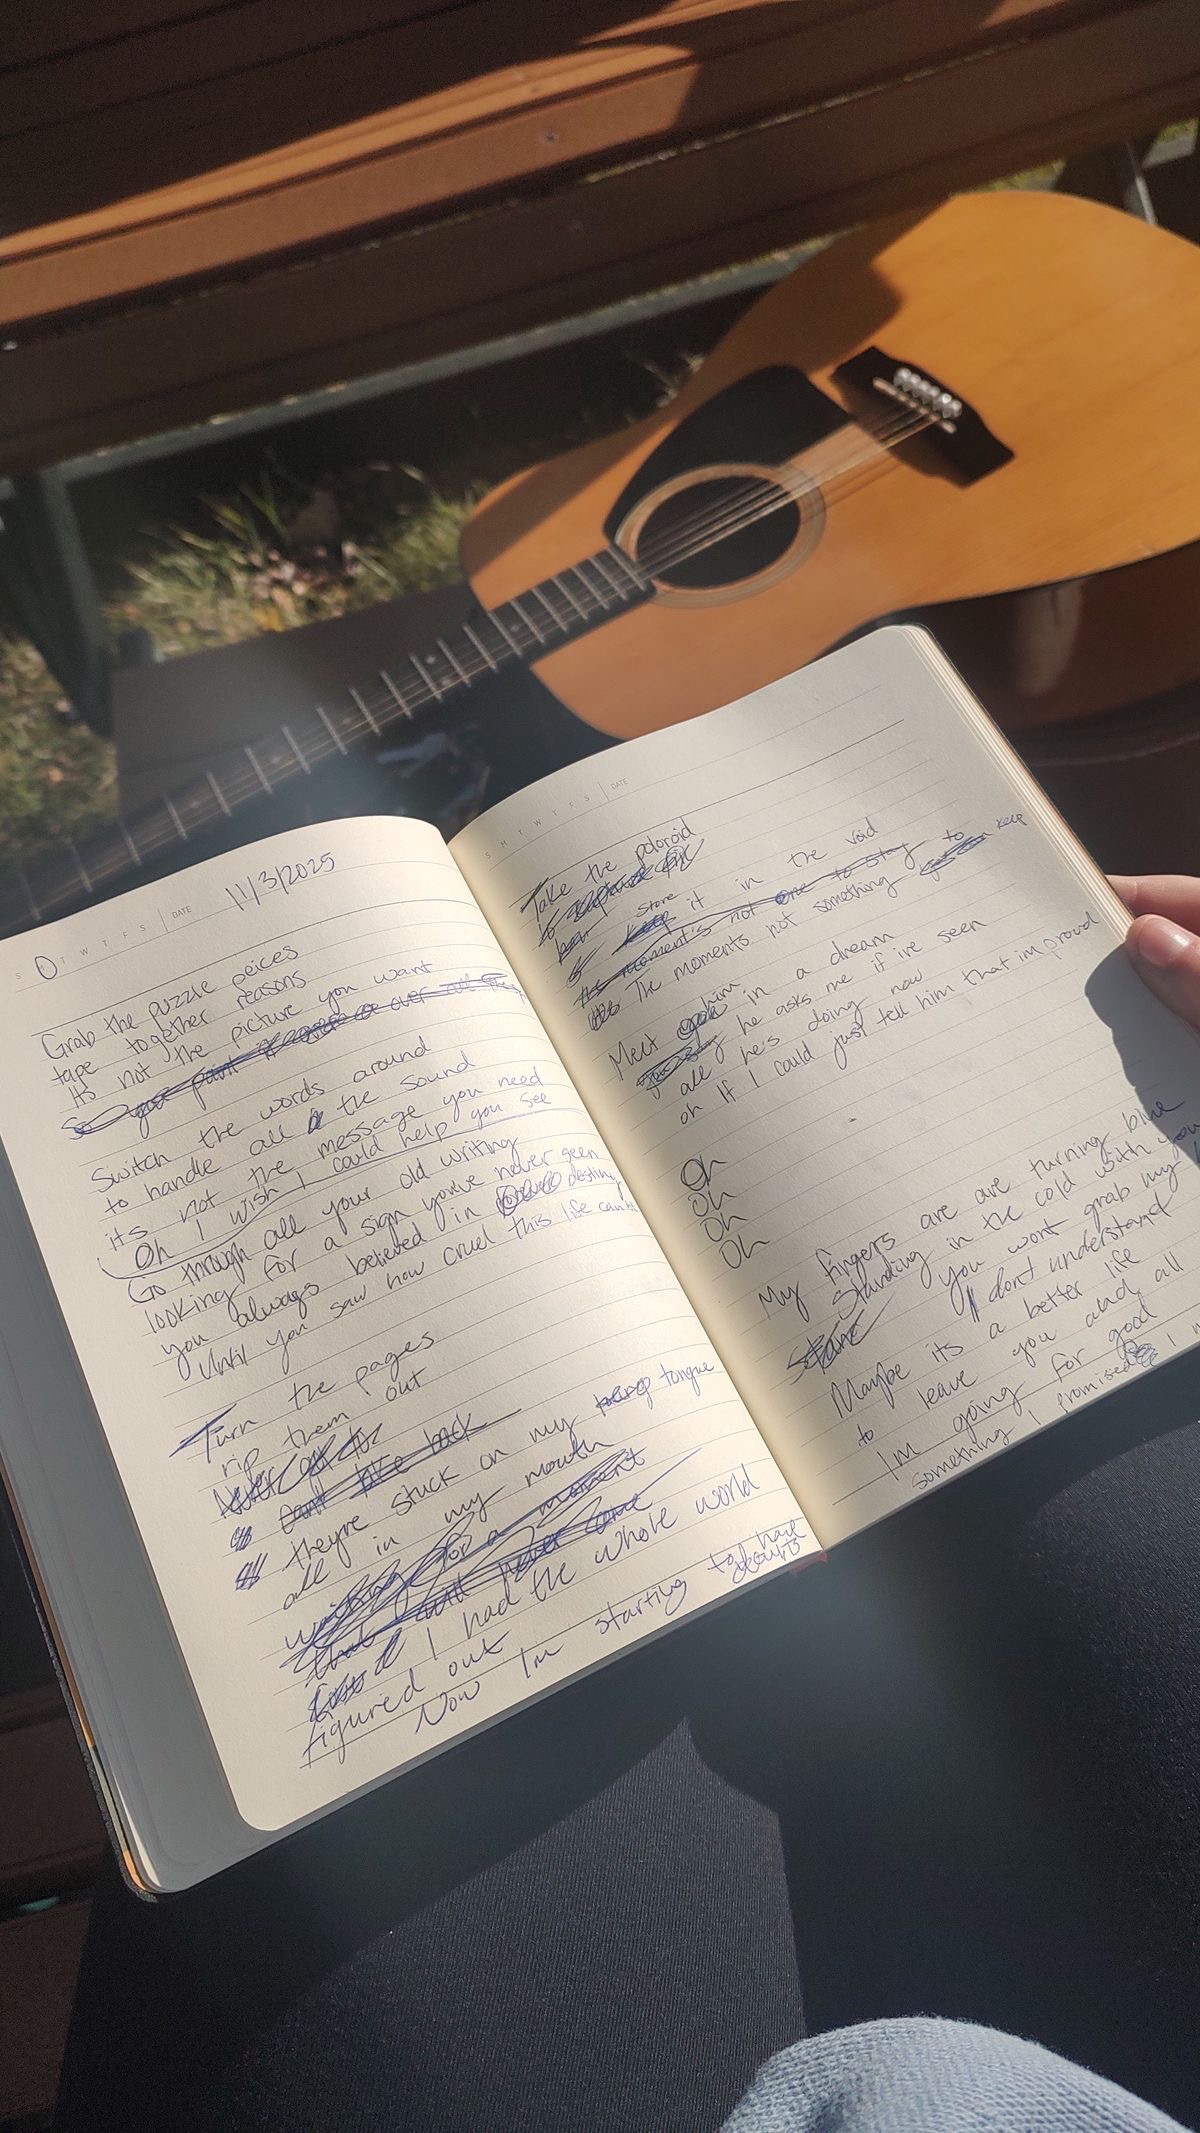 S M T W T F S DATE 11/3/2025
Grab the puzzle peices
tape together reasons
Its not the picture you want
So your
Switch the words around
to handle all the sound
its not the message you need
Oh I wish I could help you see
Go through all your old writing
looking for a sign youve never seen
you always believed in destiny
Until you saw how cruel this life can be
Turn the pages
rip them out
Cant take back
theyre stuck on my tongue
all in my mouth
waiting for a moment
that will never come
I had the whole world
figured out
Now Im starting to have
doubts
S M T W T F S DATE
Take the poloroid
to capture
store
keep it in the void
its moment's not one to stay
The moments not something to keep
Meet him in a dream
he asks me if ive seen
all he's doing now
oh If I could just tell him that im proud
Oh
Oh
Oh
Oh
My fingers are turning blue
Standing in the cold with you
you wont grab my
I dont understand
Maybe its a better life
to leave you and all
Im going for good
something I promised I